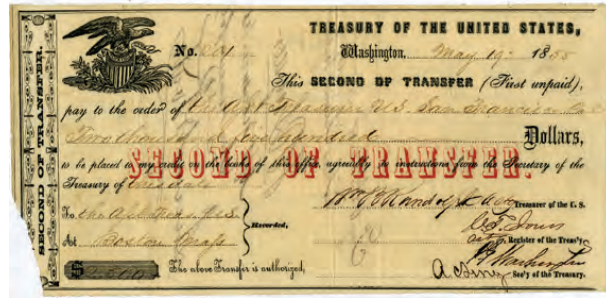 TREASURY OF THE UNITED STATES,
No.
Washington, May 19 1855
This SECOND OF TRANSFER (First unpaid),
pay to the order of the Ast Treasurer U.S. San Francisco Cal
Two thousand five hundred Dollars,
to be placed to my credit on the books of this office, agreeably to instructions from the Secretary of the
Treasury of this date
SECOND OF TRANSFER.
Treasurer of the U. S.
To the Ast Treas. U.S.
Recorded,
At Boston Mass
Register of the Treas'y.
2,500
The above Transfer is authorized,
Washington
Sec'y of the Treasury.
SECOND OF TRANSFER.